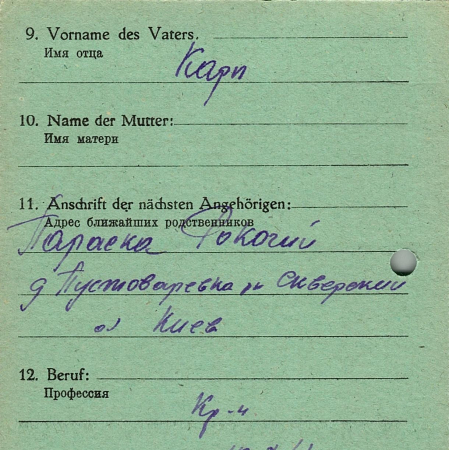 9. Vorname des Vaters.
Имя отца
Карп
10. Name der Mutter:
Имя матери
11. Anschrift der nächsten Angehörigen:
Адрес ближайших родственников
Параска
д Пустоваревка рн Скверский
о Киев
12. Beruf:
Профессия
Кр-н